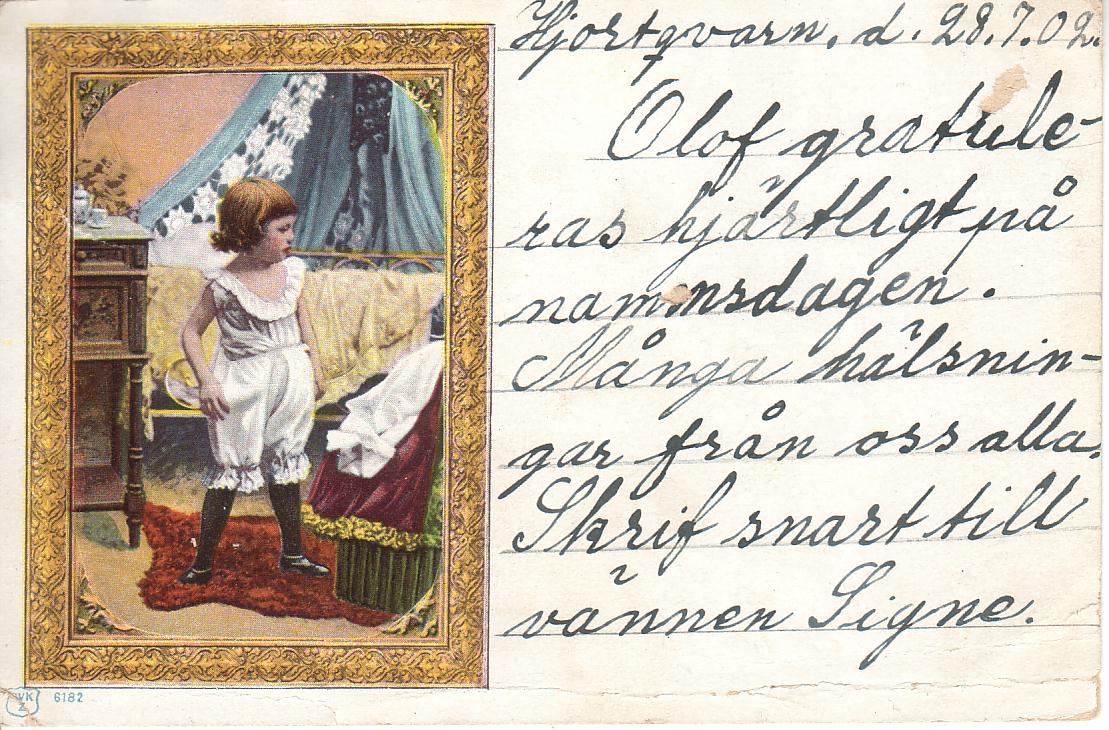 Hjortqvarn. d. 28.7.02.
Olof gratule-
ras hjärtligt på
namnsdagen.
Många hälsnin-
gar från oss alla.
Skrif snart till
vännen Signe.
VK
Z
6182